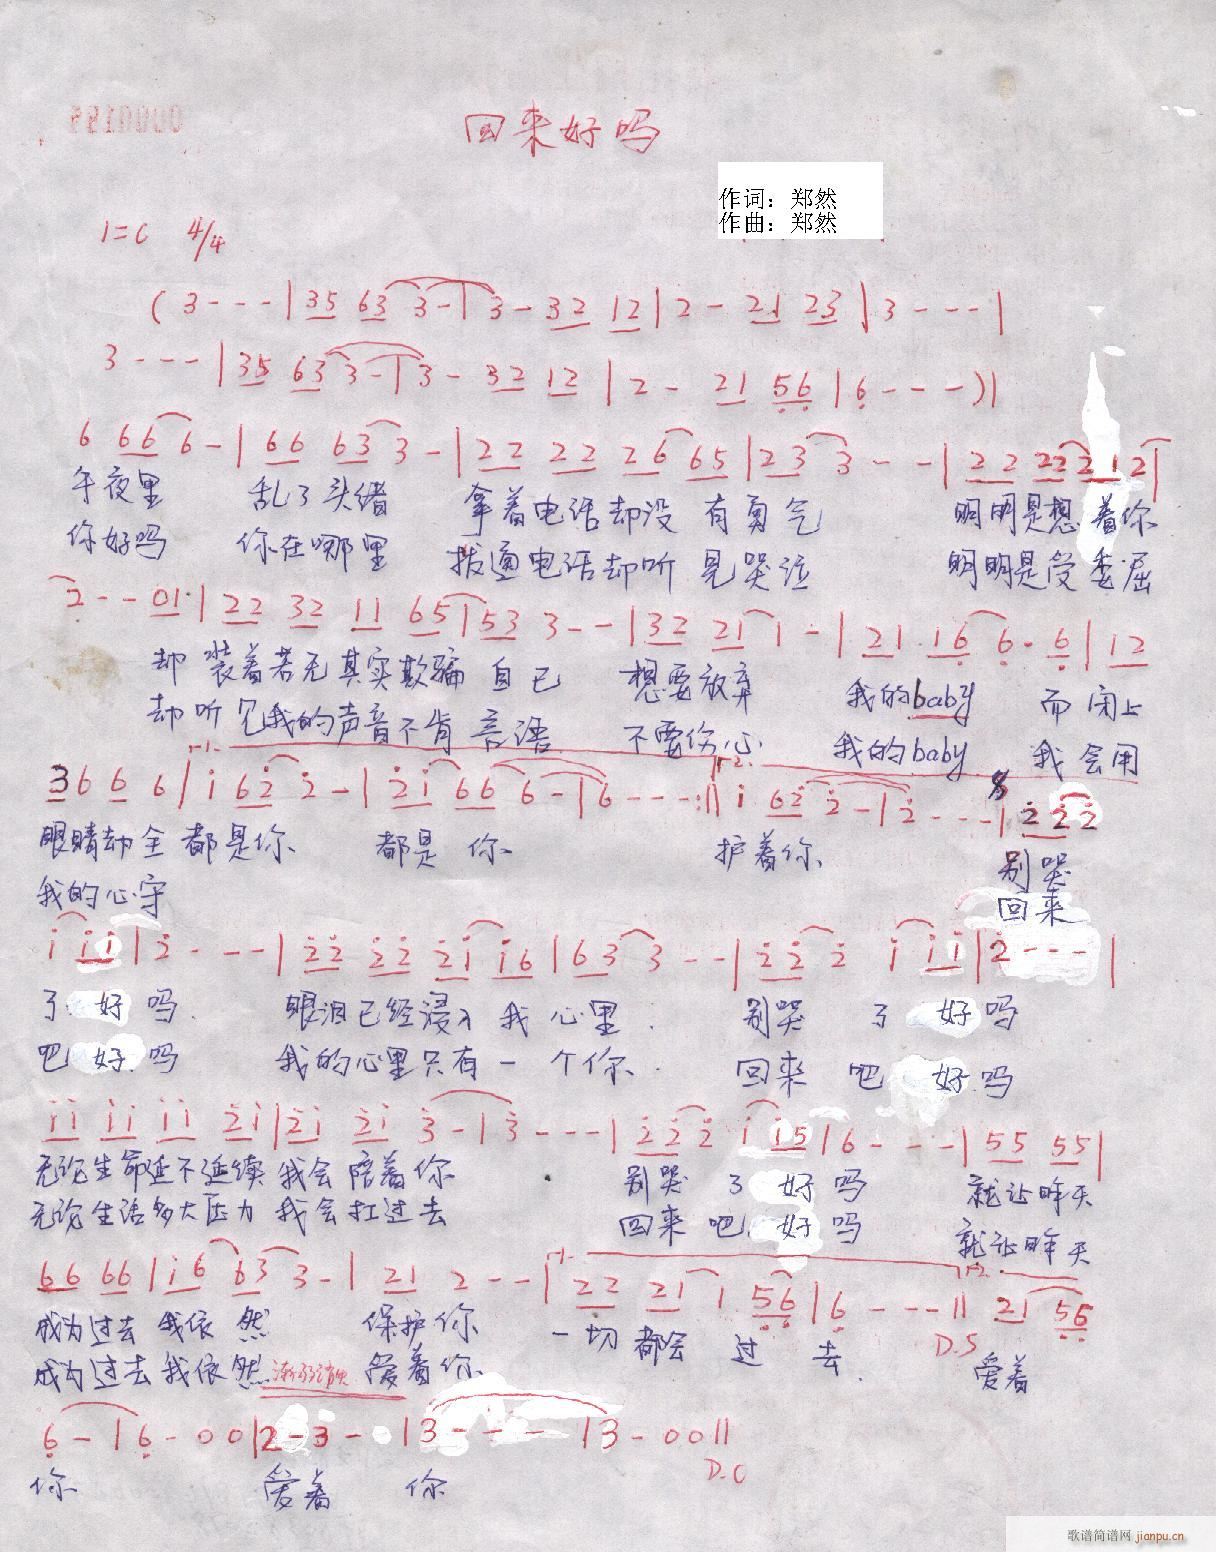 0000199
回来好吗
作词：郑然
作曲：郑然
1=C 4/4
( 3 - - - | 35 63 3 - | 3 - 32 12 | 2 - 21 23 | 3 - - - |
3 - - - | 35 63 3 - | 3 - 32 12 | 2 - 21 56 | 6 - - - ) |
6 66 6 - | 66 63 3 - | 22 22 26 65 | 23 3 - - | 22 22 21 2 |
午夜里 乱了头绪 拿着电话却没有勇气 明明是想着你
你好吗 你在哪里 拨通电话却听见哭泣 明明是受委屈
2 - - 01 | 22 32 11 65 | 53 3 - - | 32 21 1 - | 21 16 6· 6 | 12
却装着若无其实欺骗自己 想要放弃 我的baby 而闭上
却听见我的声音不肯言语 不要伤心 我的baby 我会用
1. 2.
36 6 6 | i 62 2 - | 2i 66 6 - | 6 - - - :|| i 62 2 - | 2 - - - | 2 2 2
眼睛却全都是你 都是你 护着你 别哭
我的心守 回来
i i i | 2 - - - | 22 22 2i i6 | 63 3 - - | 2 2 2 i i i | 2 - - - |
了好吗 眼泪已经浸入我心里 别哭了好吗
吧好吗 我的心里只有一个你 回来吧好吗
ii ii ii 2i | 2i 2i 3 - | 3 - - - | 2 2 2 i i5 | 6 - - - | 55 55 |
无论生命延不延续我会陪着你 别哭了好吗 就让昨天
无论生活多大压力我会扛过去 回来吧好吗 就让昨天
1. 2.
66 66 | i6 63 3 - | 21 2 - - | 22 21 1 56 | 6 - - - || 21 56
成为过去我依然 保护你 一切都会过去 D.S 爱着
成为过去我依然 爱着你
6 - | 6 - 0 0 | 2 - 3 - | 3 - - - | 3 - 0 0 ||
D.C
你 爱着 你
歌谱简谱网 jianpu.cn